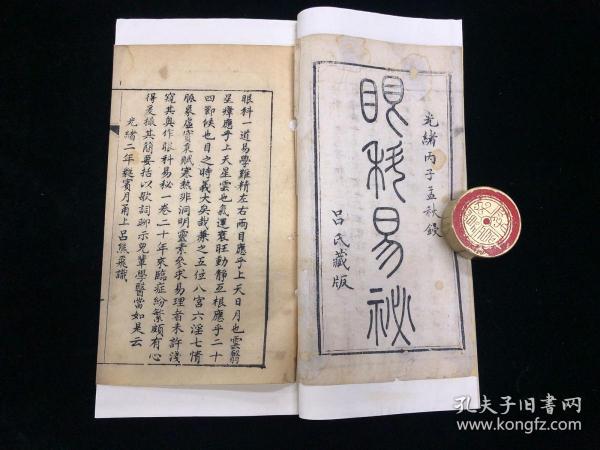 光緒丙子孟秋鋟
眼科易祕
呂氏藏版
眼科一道易學難精左右兩目應乎上天日月也雲翳
星瘴應乎上天星雲也氣運衰旺動靜互根應乎二十
四節候也目之時義大矣哉兼之五位八宮六淫七情
脈象虛實衰賦寒熱非洞明靈素參求易理者未許淺
窺其奧作眼科易秘一卷二十年來臨症紛繁頗有心
得爰撮其簡要括以歌詞聊示兒輩學醫當如是云
光緒二年蕤賓月甬上呂熊飛識
孔夫子旧书网
www.kongfz.com